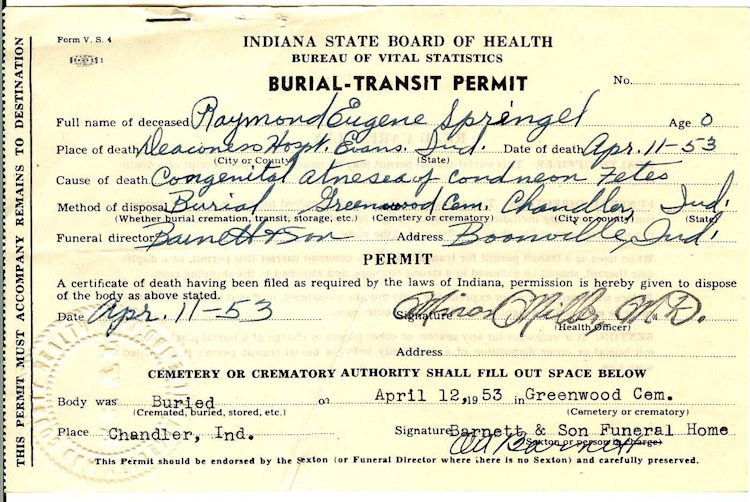 Form V. S. 4
INDIANA STATE BOARD OF HEALTH
BUREAU OF VITAL STATISTICS
BURIAL-TRANSIT PERMIT
No.
Full name of deceased Raymond Eugene Springel Age 0
Place of death Deaconess Hospt. Evans. Ind. Date of death Apr. 11-53
(City or County) (State)
Cause of death Congenital of Fetes
Method of disposal Burial Greenwood Cem. Chandler, Ind.
(Whether burial cremation, transit, storage, etc.) (Cemetery or crematory) (City or county) (State)
Funeral director Barnett & Son Address Boonville, Ind.
PERMIT
A certificate of death having been filed as required by the laws of Indiana, permission is hereby given to dispose
of the body as above stated.
Date Apr. 11-53 Signature Miller M.D.
(Health Officer)
Address
CEMETERY OR CREMATORY AUTHORITY SHALL FILL OUT SPACE BELOW
Body was Buried on April 12, 1953 in Greenwood Cem.
(Cremated, buried, stored, etc.) (Cemetery or crematory)
Place Chandler, Ind. Signature Barnett & Son Funeral Home
(Sexton or person in charge)
Barnett
This Permit should be endorsed by the Sexton (or Funeral Director where there is no Sexton) and carefully preserved.
THIS PERMIT MUST ACCOMPANY REMAINS TO DESTINATION